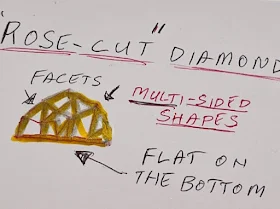 "ROSE-CUT" DIAMOND
FACETS
MULTI-SIDED
SHAPES
FLAT ON
THE BOTTOM